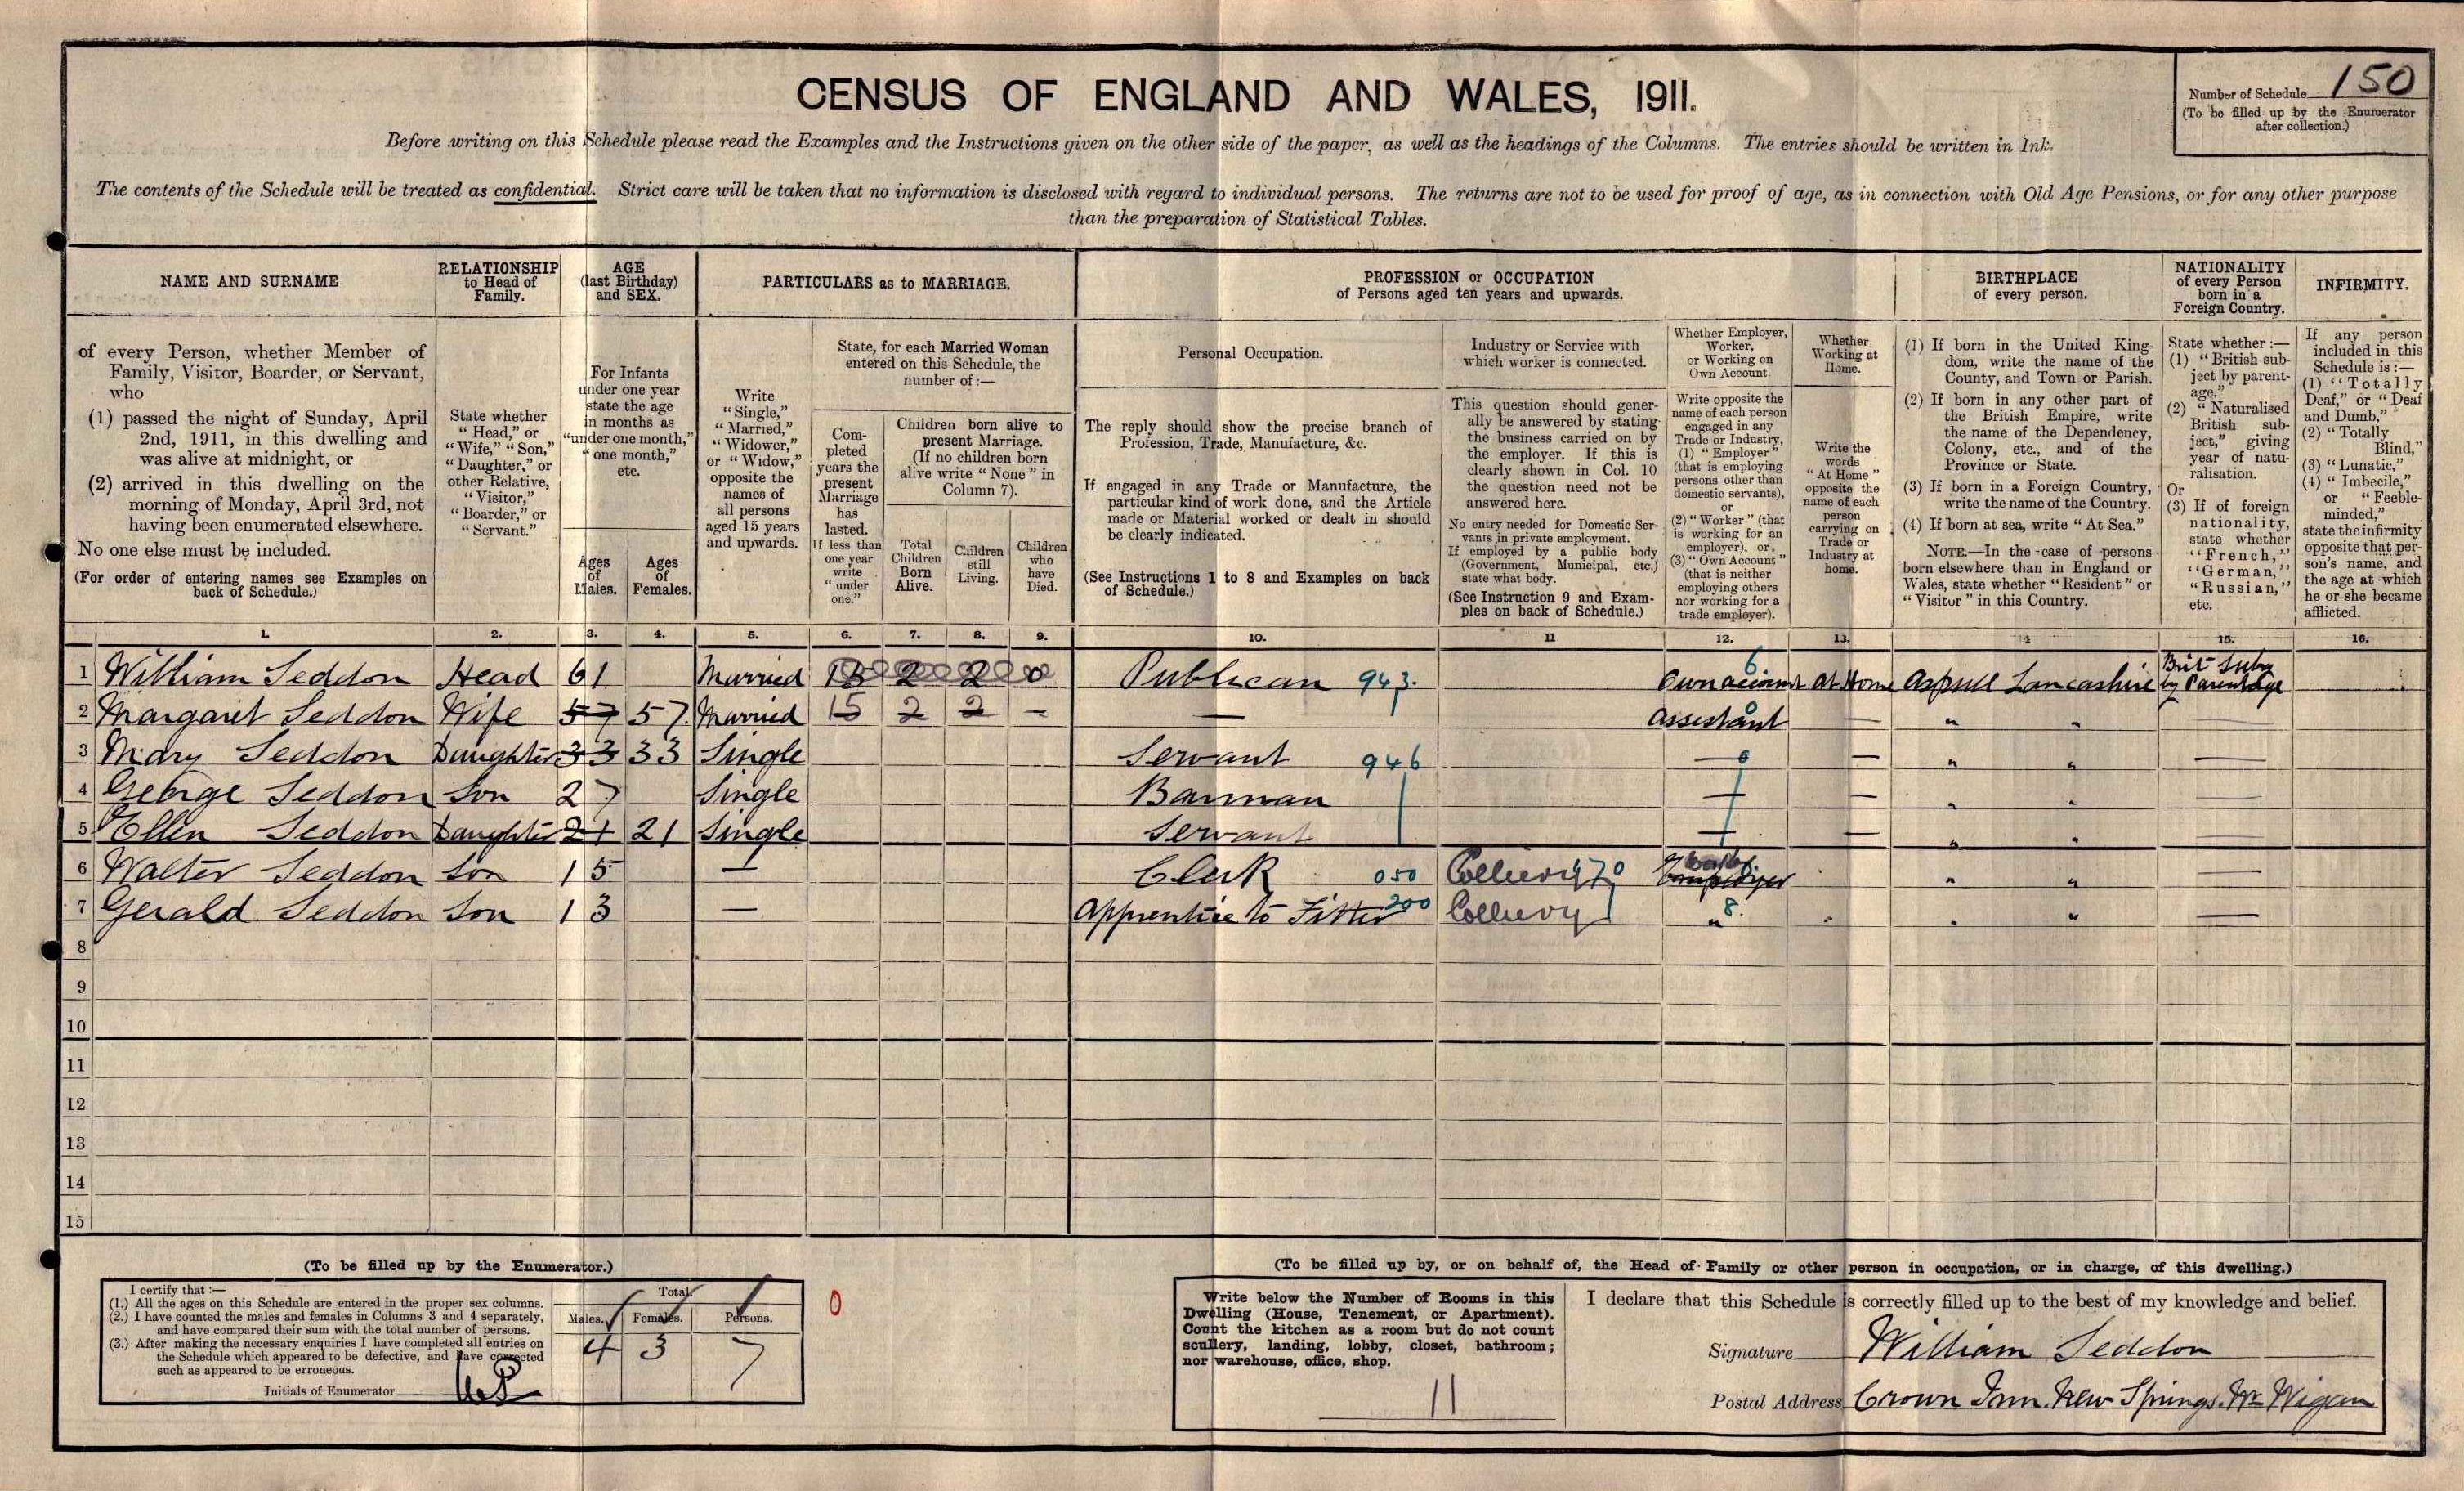 CENSUS OF ENGLAND AND WALES, 1911.
Number of Schedule 150
(To be filled up by the Enumerator
after collection.)
Before writing on this Schedule please read the Examples and the Instructions given on the other side of the paper, as well as the headings of the Columns. The entries should be written in Ink.
The contents of the Schedule will be treated as confidential. Strict care will be taken that no information is disclosed with regard to individual persons. The returns are not to be used for proof of age, as in connection with Old Age Pensions, or for any other purpose
than the preparation of Statistical Tables.
NAME AND SURNAME
of every Person, whether Member of
Family, Visitor, Boarder, or Servant,
who
(1) passed the night of Sunday, April
2nd, 1911, in this dwelling and
was alive at midnight, or
(2) arrived in this dwelling on the
morning of Monday, April 3rd, not
having been enumerated elsewhere.
No one else must be included.
(For order of entering names see Examples on
back of Schedule.)
RELATIONSHIP
to Head of
Family.
State whether
"Head," or
"Wife," "Son,"
"Daughter," or
other Relative,
"Visitor,"
"Boarder," or
"Servant."
AGE
(last Birthday)
and SEX.
For Infants
under one year
state the age
in months as
"under one month,"
"one month,"
etc.
Ages
of
Males.
Ages
of
Females.
PARTICULARS as to MARRIAGE.
Write
"Single,"
"Married,"
"Widower,"
or "Widow,"
opposite the
names of
all persons
aged 15 years
and upwards.
State, for each Married Woman
entered on this Schedule, the
number of :—
Com-
pleted
years the
present
Marriage
has
lasted.
If less than
one year
write
"under
one."
Children born alive to
present Marriage.
(If no children born
alive write "None" in
Column 7).
Total
Children
Born
Alive.
Children
still
Living.
Children
who
have
Died.
PROFESSION or OCCUPATION
of Persons aged ten years and upwards.
Personal Occupation.
The reply should show the precise branch of
Profession, Trade, Manufacture, &c.
If engaged in any Trade or Manufacture, the
particular kind of work done, and the Article
made or Material worked or dealt in should
be clearly indicated.
(See Instructions 1 to 8 and Examples on back
of Schedule.)
Industry or Service with
which worker is connected.
This question should gener-
ally be answered by stating
the business carried on by
the employer. If this is
clearly shown in Col. 10
the question need not be
answered here.
No entry needed for Domestic Ser-
vants in private employment.
If employed by a public body
(Government, Municipal, etc.)
state what body.
(See Instruction 9 and Exam-
ples on back of Schedule.)
Whether Employer,
Worker,
or Working on
Own Account.
Write opposite the
name of each person
engaged in any
Trade or Industry,
(1) "Employer"
(that is employing
persons other than
domestic servants),
or
(2) "Worker" (that
is working for an
employer), or
(3) "Own Account"
(that is neither
employing others
nor working for a
trade employer).
Whether
Working at
Home.
Write the
words
"At Home"
opposite the
name of each
person
carrying on
Trade or
Industry at
home.
BIRTHPLACE
of every person.
(1) If born in the United King-
dom, write the name of the
County, and Town or Parish.
(2) If born in any other part of
the British Empire, write
the name of the Dependency,
Colony, etc., and of the
Province or State.
(3) If born in a Foreign Country,
write the name of the Country.
(4) If born at sea, write "At Sea."
NOTE.—In the case of persons
born elsewhere than in England or
Wales, state whether "Resident" or
"Visitor" in this Country.
NATIONALITY
of every Person
born in a
Foreign Country.
State whether :—
(1) "British sub-
ject by parent-
age."
(2) "Naturalised
British sub-
ject," giving
year of natu-
ralisation.
Or
(3) If of foreign
nationality,
state whether
"French,"
"German,"
"Russian,"
etc.
INFIRMITY.
If any person
included in this
Schedule is :—
(1) "Totally
Deaf," or "Deaf
and Dumb,"
(2) "Totally
Blind,"
(3) "Lunatic,"
(4) "Imbecile,"
or "Feeble-
minded,"
state the infirmity
opposite that per-
son's name, and
the age at which
he or she became
afflicted.
1. 2. 3. 4. 5. 6. 7. 8. 9. 10. 11 12. 13. 14 15. 16.
1 William Seddon Head 61 Married 2 2 0 Publican 943. 6 Own account At Home Aspull Lancashire Brit Subj by Parentage
2 Margaret Seddon Wife 57 57 Married 15 2 2 — — Assistant — " "
3 Mary Seddon Daughter 33 33 Single Servant 946 — — " " —
4 George Seddon Son 27 Single Barman — — " " —
5 Ellen Seddon Daughter 21 21 Single Servant — — " " —
6 Walter Seddon Son 15 — Clerk 050 Colliery 470 " " —
7 Gerald Seddon Son 13 — Apprentice to Fitter 200 Colliery " 8. " " —
8
9
10
11
12
13
14
15
(To be filled up by the Enumerator.)
I certify that :—
(1.) All the ages on this Schedule are entered in the proper sex columns.
(2.) I have counted the males and females in Columns 3 and 4 separately,
and have compared their sum with the total number of persons.
(3.) After making the necessary enquiries I have completed all entries on
the Schedule which appeared to be defective, and have corrected
such as appeared to be erroneous.
Initials of Enumerator
Total.
Males. Females. Persons.
4 3 7
0
(To be filled up by, or on behalf of, the Head of Family or other person in occupation, or in charge, of this dwelling.)
Write below the Number of Rooms in this
Dwelling (House, Tenement, or Apartment).
Count the kitchen as a room but do not count
scullery, landing, lobby, closet, bathroom;
nor warehouse, office, shop.
11
I declare that this Schedule is correctly filled up to the best of my knowledge and belief.
Signature William Seddon
Postal Address Crown Inn. New Springs. Nr Wigan